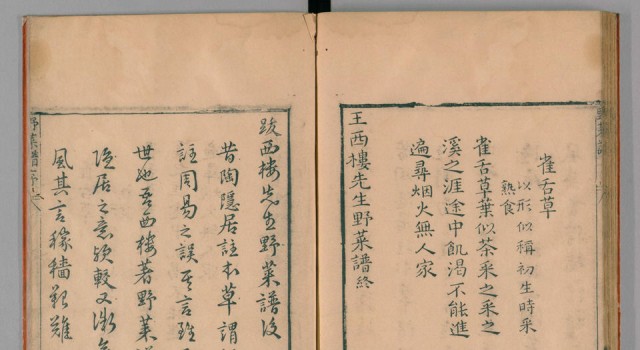 雀舌草
以形似稱初生時采
熟食
雀舌草葉似茶采之采之
溪之涯途中飢渴不能進
遍尋烟火無人家
王西樓先生野菜譜終
跋西樓先生野菜譜後
昔陶隱居註本草謂
註周易之誤其言
世也吾西樓著野菜
隱居之意頗較又
風其言稼穡艱難
野菜譜